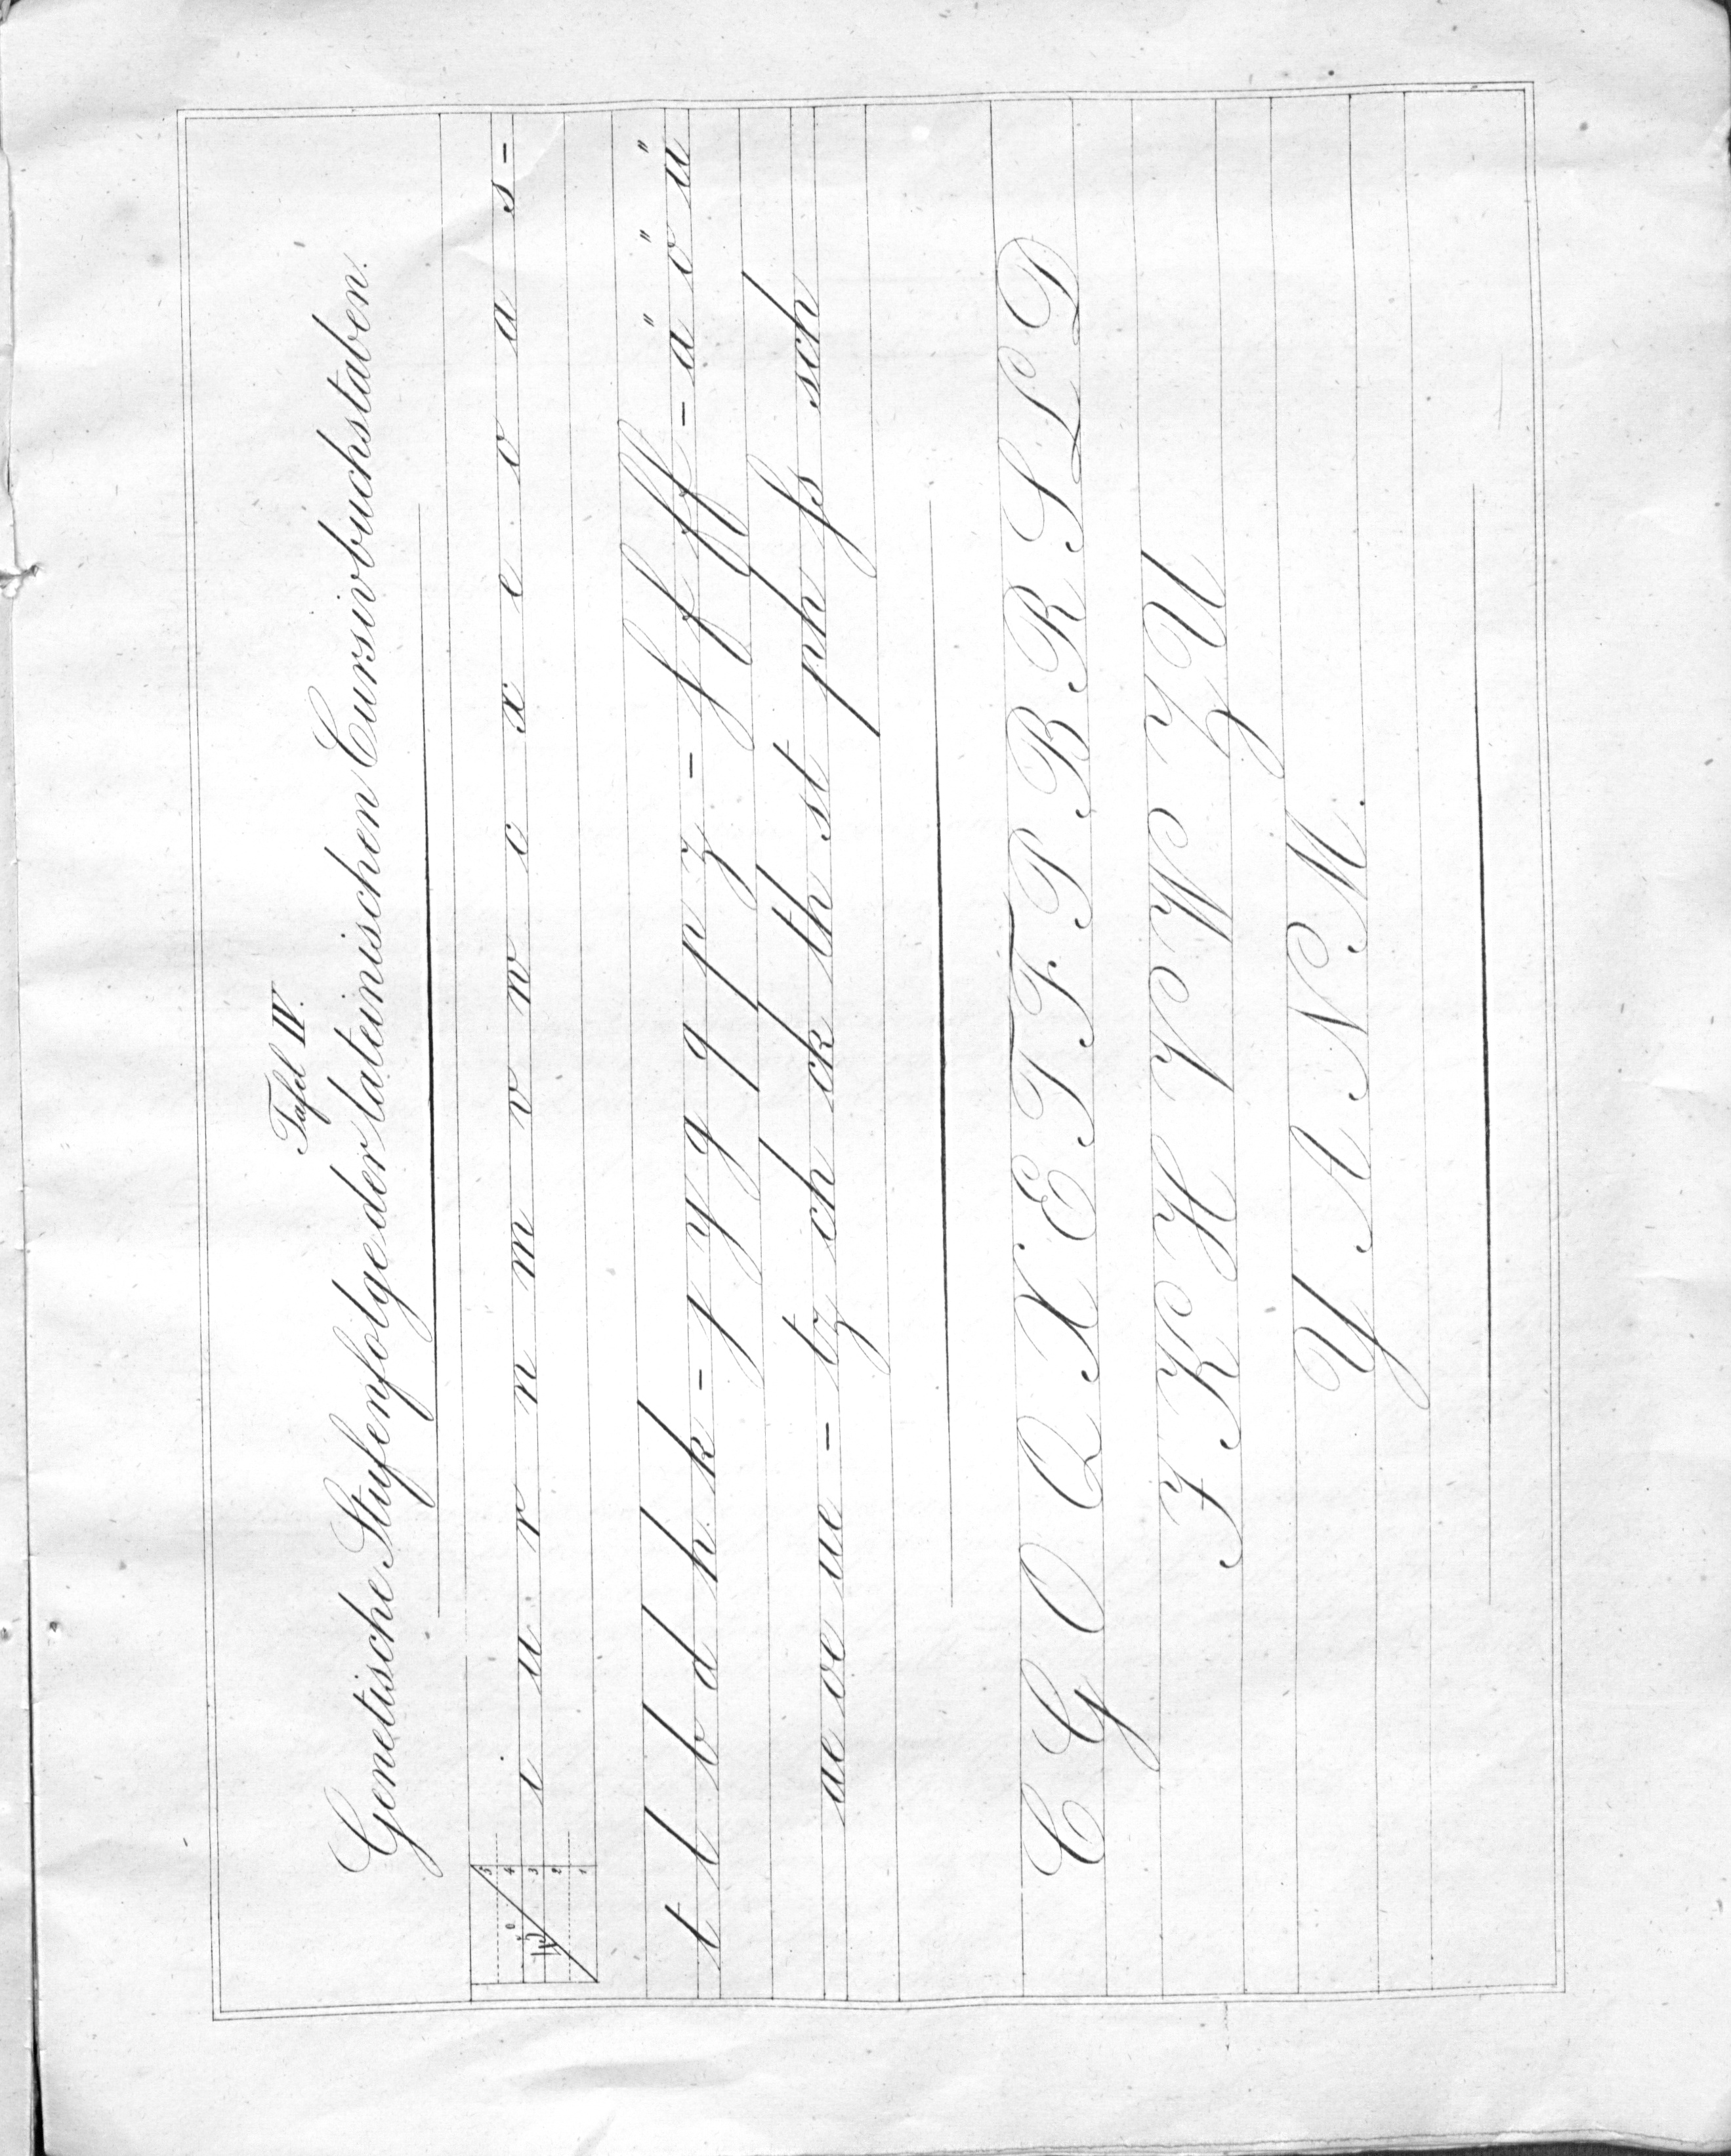 Tafel IV.
Genetische Stufenfolge der lateinischen Cursivbuchstaben.
5
4
3
2
1
i u r n m v w c x e o a s -
t l b d h k - j y g q p z - ſ f ff - ä ö ü
ae oe ue - tz ch ck th st ph ſs sch
C G O Q X E T F P B R S L D
J K H V W Z U
Y A N M.